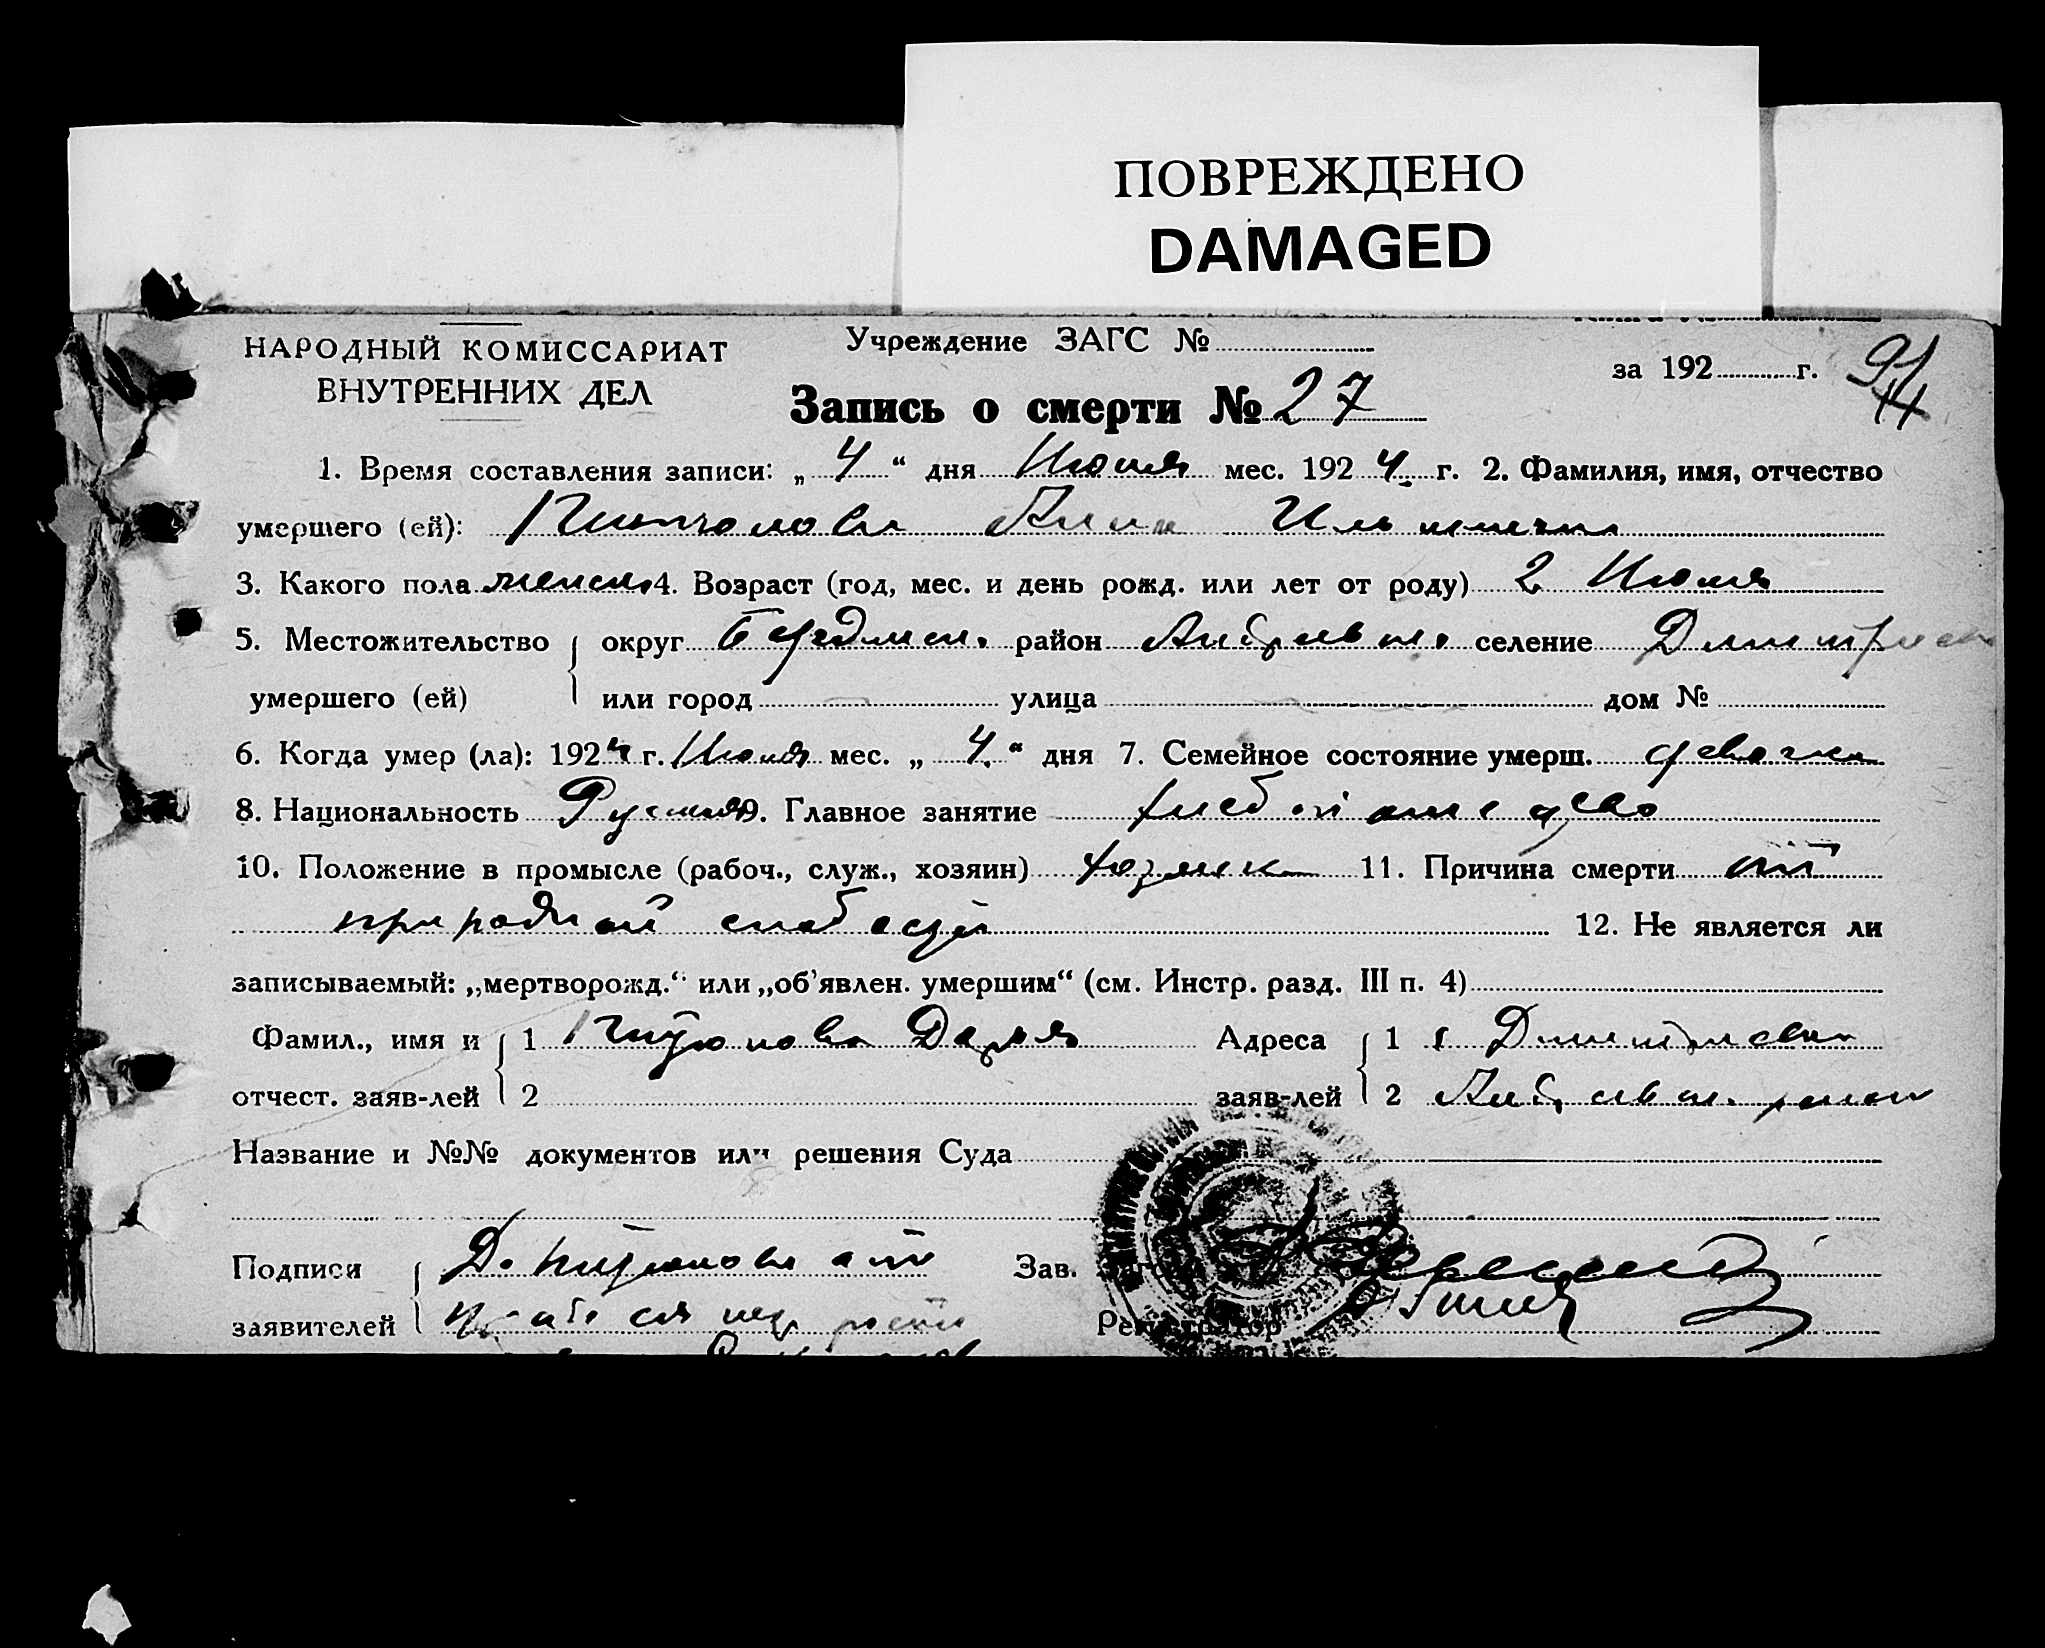 ПОВРЕЖДЕНО
DAMAGED
НАРОДНЫЙ КОМИССАРИАТ
ВНУТРЕННИХ ДЕЛ
Учреждение ЗАГС №
за 192 г.
Запись о смерти № 27
1. Время составления записи: „ 4 “ дня Июня мес. 1924 г. 2. Фамилия, имя, отчество
умершего (ей): Анна
3. Какого пола женск. 4. Возраст (год, мес. и день рожд. или лет от роду) 2 Июня
5. Местожительство округ Бердянск. район Андреевск. селение
умершего (ей) или город улица дом №
6. Когда умер (ла): 1924 г. Июня мес. „ 4 “ дня 7. Семейное состояние умерш. девочка
8. Национальность Русская 9. Главное занятие хлебопашество
10. Положение в промысле (рабоч., служ., хозяин) 11. Причина смерти от
природной слабости 12. Не является ли
записываемый: „мертворожд.“ или „об’явлен. умершим“ (см. Инстр. разд. III п. 4)
Фамил., имя и 1 Дарья Адреса 1
отчест. заяв-лей 2 заяв-лей 2 Андреевск. район
Название и №№ документов или решения Суда
Подписи Зав.
заявителей Регистратор